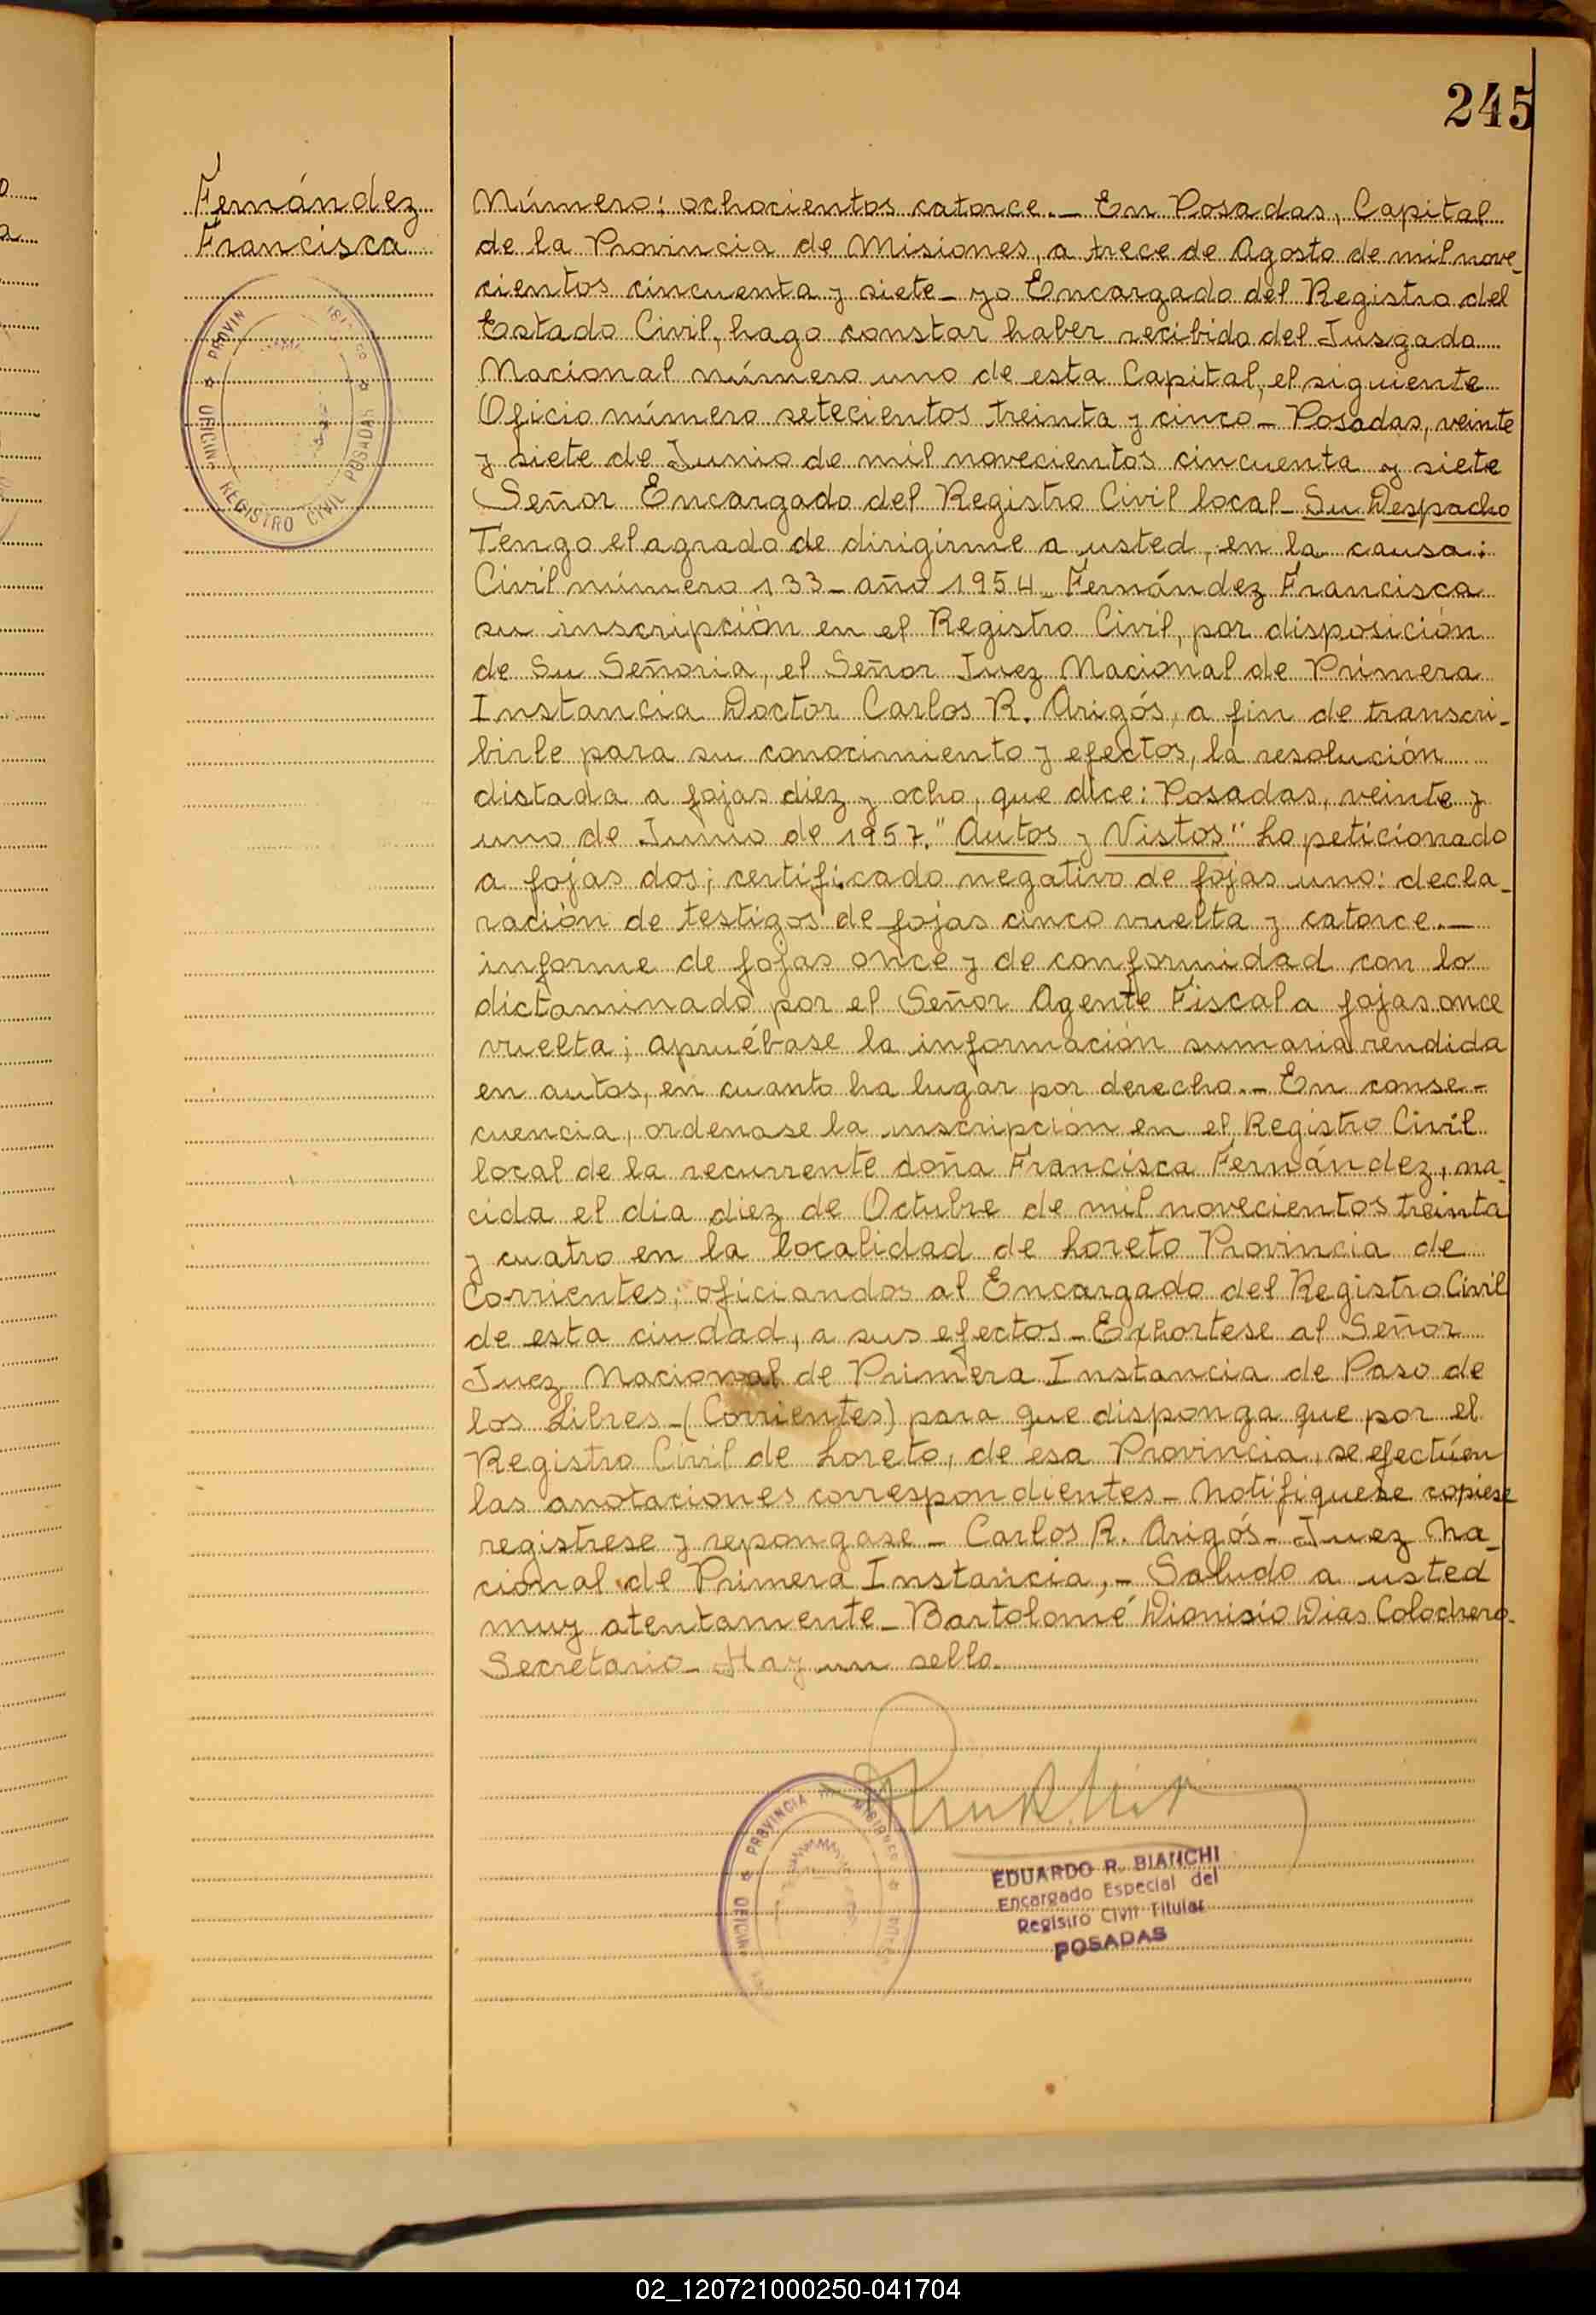 245
Fernández
Francisca
Número: ochocientos catorce.— En Posadas, Capital
de la Provincia de Misiones, a trece de Agosto de mil nove-
cientos cincuenta y siete— yo Encargado del Registro del
Estado Civil, hago constar haber recibido del Jusgado
Nacional número uno de esta Capital, el siguiente
Oficio número setecientos treinta y cinco— Posadas, veinte
y siete de Junio de mil novecientos cincuenta y siete
Señor Encargado del Registro Civil local— Su Despacho
Tengo el agrado de dirigirme a usted, en la causa:
Civil número 133— año 1954— Fernández Francisca
su inscripción en el Registro Civil, por disposición
de Su Señoria, el Señor Juez Nacional de Primera
Instancia Doctor Carlos R. Arigós, a fin de transcri-
birle para su conocimiento y efectos, la resolución
distada a fojas diez y ocho, que dice: Posadas, veinte y
uno de Junio de 1957. "Autos y Vistos" Lo peticionado
a fojas dos; certificado negativo de fojas uno: decla-
ración de testigos de fojas cinco vuelta y catorce.—
informe de fojas once y de conformidad con lo
dictaminado por el Señor Agente Fiscal a fojas once
vuelta; apruébase la información sumaria rendida
en autos, en cuanto ha lugar por derecho.— En conse-
cuencia, ordenase la inscripción en el Registro Civil
local de la recurrente doña Francisca Fernández, na-
cida el día diez de Octubre de mil novecientos treinta
y cuatro en la localidad de Loreto Provincia de
Corrientes; oficiandos al Encargado del Registro Civil
de esta ciudad, a sus efectos— Exhortese al Señor
Juez Nacional de Primera Instancia de Paso de
los Libres—(Corrientes) para que disponga que por el
Registro Civil de Loreto, de esa Provincia, se efectúen
las anotaciones correspondientes— Notifiquese copiese
registrese y repongase— Carlos R. Arigós— Juez Na-
cional de Primera Instancia,— Saludo a usted
muy atentamente— Bartolomé Dionisio Dias Colochero—
Secretario— Hay un sello.
EDUARDO R. BIANCHI
Encargado Especial del
Registro Civil Titular
POSADAS
PROVINCIA MISIONES
REGISTRO CIVIL POSADAS
02_120721000250-041704